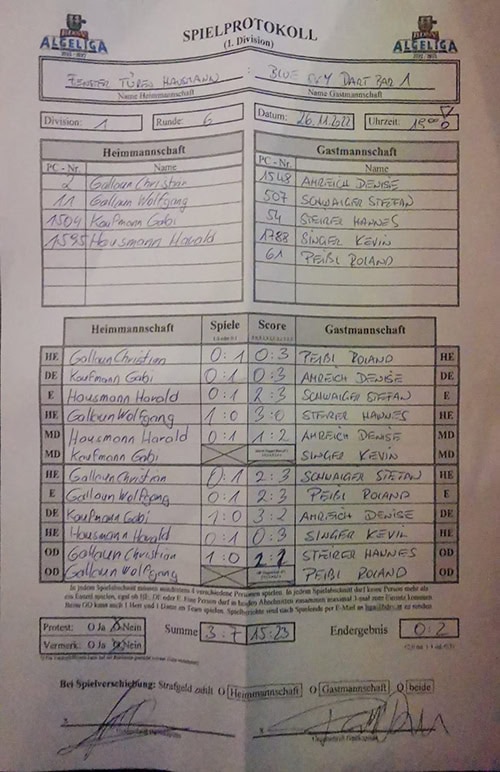 ALGELIGA SPIELPROTOKOLL ALGELIGA
(1. Division)
FENSTER TÜREN HAUSMANN : BLUE SKY DART BAR 1
Name Heimmannschaft Name Gastmannschaft
Division: 1 Runde: 6 Datum: 26.11.2022 Uhrzeit: 19
Heimmannschaft Gastmannschaft
PC - Nr. Name PC - Nr. Name
2 Galloun Christian 1548 AHREICH DENISE
11 Galloun Wolfgang 507 SCHWAIGER STEFAN
1504 Kaufmann Gabi 54 STEIRER HANNES
1595 Hausmann Harald 1788 SINGER KEVIN
61 PEIßL ROLAND
Heimmannschaft Spiele Score Gastmannschaft
HE Galloun Christian 0:1 0:3 PEIßL ROLAND HE
DE Kaufmann Gabi 0:1 0:3 AHREICH DENISE DE
E Hausmann Harald 0:1 2:3 SCHWAIGER STEFAN E
HE Galloun Wolfgang 1:0 3:0 STEIRER HANNES HE
MD Hausmann Harald 0:1 1:2 AHREICH DENISE MD
MD Kaufmann Gabi SINGER KEVIN MD
HE Galloun Christian 0:1 2:3 SCHWAIGER STEFAN HE
E Galloun Wolfgang 0:1 2:3 PEIßL ROLAND E
DE Kaufmann Gabi 1:0 3:2 AHREICH DENISE DE
HE Hausmann Harald 0:1 0:3 SINGER KEVIN HE
OD Galloun Christian 1:0 STEIRER HANNES OD
OD Galloun Wolfgang PEIßL ROLAND OD
In jedem Spielabschnitt müssen mindestens 4 verschiedene Personen spielen. In jedem Spielabschnitt darf keine Person mehr als
ein Einzel spielen, egal ob HE, DE oder E. Eine Person darf in beiden Abschnitten zusammen maximal 3-mal zum Einsatz kommen
Beim OD kann auch 1 Herr und 1 Dame als Team spielen. Spielberichte sind nach Spielende per E-Mail an
Protest: O Ja O Nein Summe 3:7 15:23 Endergebnis 0:2
Vermerk: O Ja O Nein
Bei Spielverschiebung: Strafgeld zahlt O Heimmannschaft O Gastmannschaft O beide